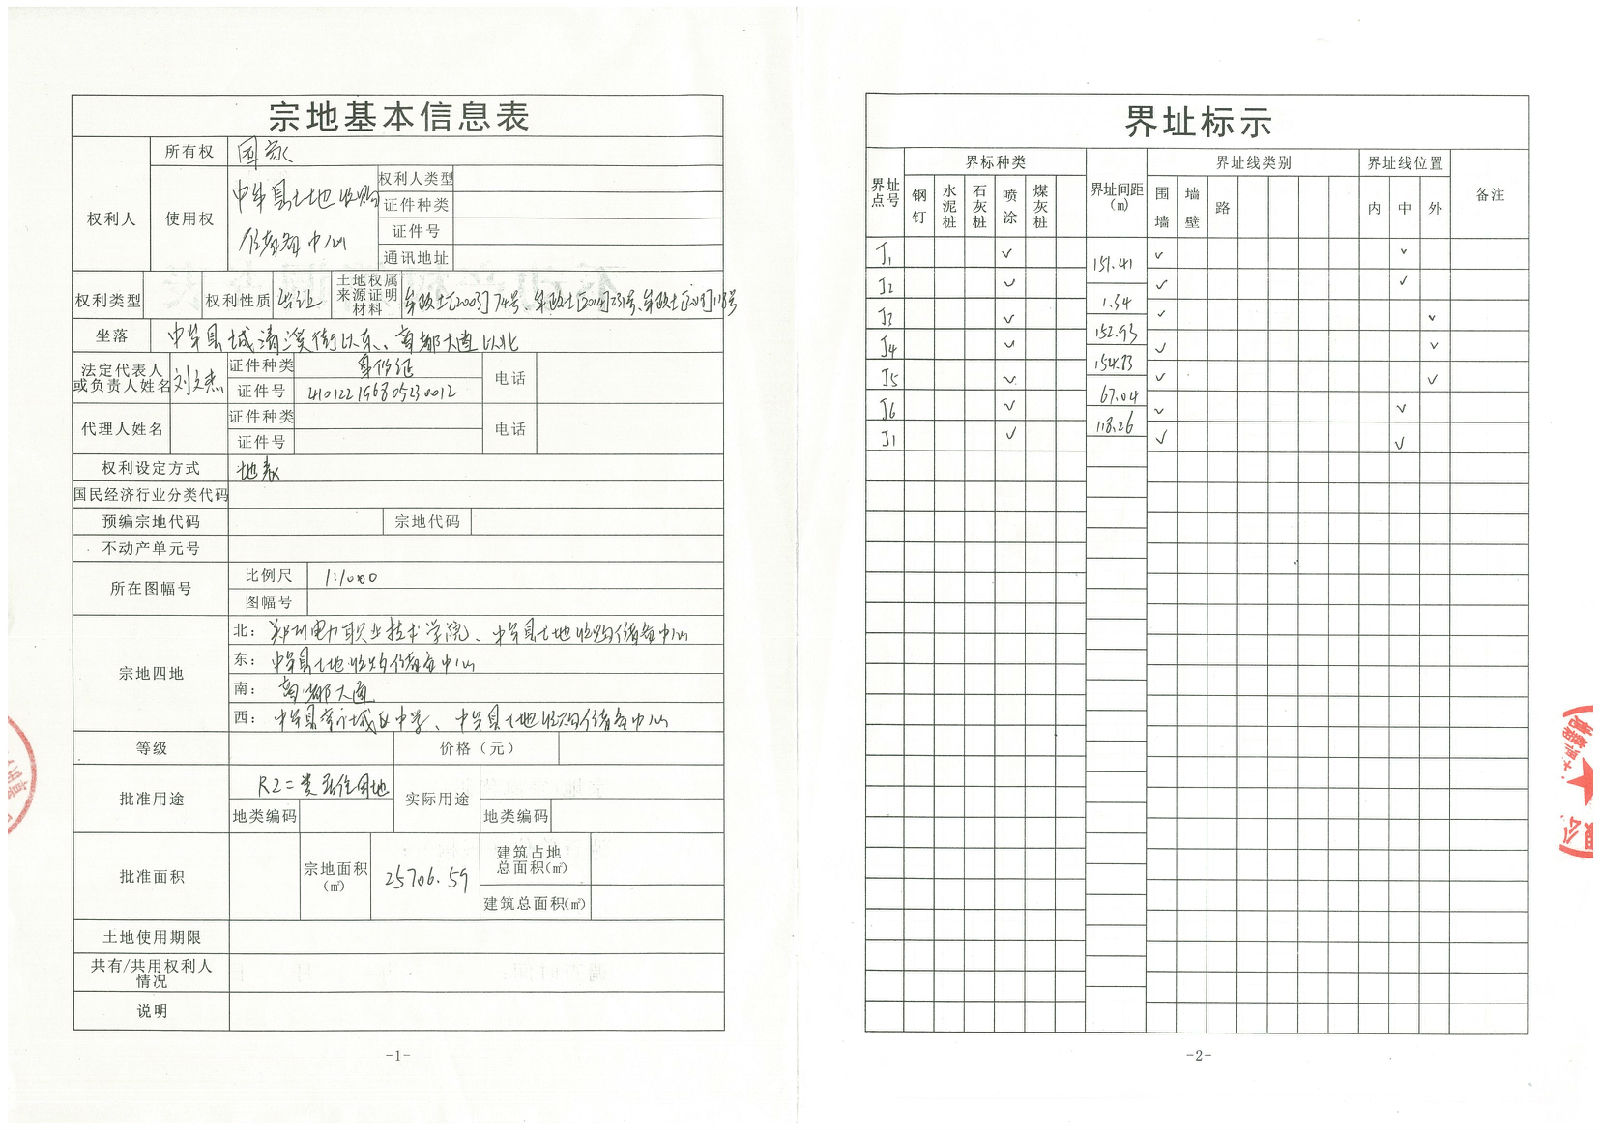 宗地基本信息表
权利人
所有权
国家
使用权
中牟县土地收购
储备中心
权利人类型
证件种类
证件号
通讯地址
权利类型
权利性质
出让
土地权属
来源证明
材料
牟政土[2003]74号、牟政土[2014]231号、牟政土[2015]118号
坐落
中牟县城清溪街以东、商都大道以北
法定代表人
或负责人姓名
证件种类
身份证
证件号
410122196805230012
电话
代理人姓名
证件种类
证件号
电话
权利设定方式
地表
国民经济行业分类代码
预编宗地代码
宗地代码
不动产单元号
所在图幅号
比例尺
1:1000
图幅号
宗地四地
北：郑州电力职业技术学院、中牟县土地收购储备中心
东：中牟县土地收购储备中心
南：商都大道
西：中牟县 中学、中牟县土地收购储备中心
等级
价格（元）
批准用途
R2二类居住用地
地类编码
实际用途
地类编码
批准面积
宗地面积
(㎡)
25706.59
建筑占地
总面积(㎡)
建筑总面积(㎡)
土地使用期限
共有/共用权利人
情况
说明
-1-
界址标示
界址
点号
界标种类
钢钉
水泥桩
石灰桩
喷涂
煤灰桩
界址间距
(m)
界址线类别
围墙
墙壁
路
界址线位置
内
中
外
备注
J1 ✓ ✓ ✓
151.41
J2 ✓ ✓ ✓
1.34
J3 ✓ ✓ ✓
152.93
J4 ✓ ✓ ✓
154.83
J5 ✓ ✓ ✓
67.04
J6 ✓ ✓ ✓
118.26
J1 ✓ ✓ ✓
-2-